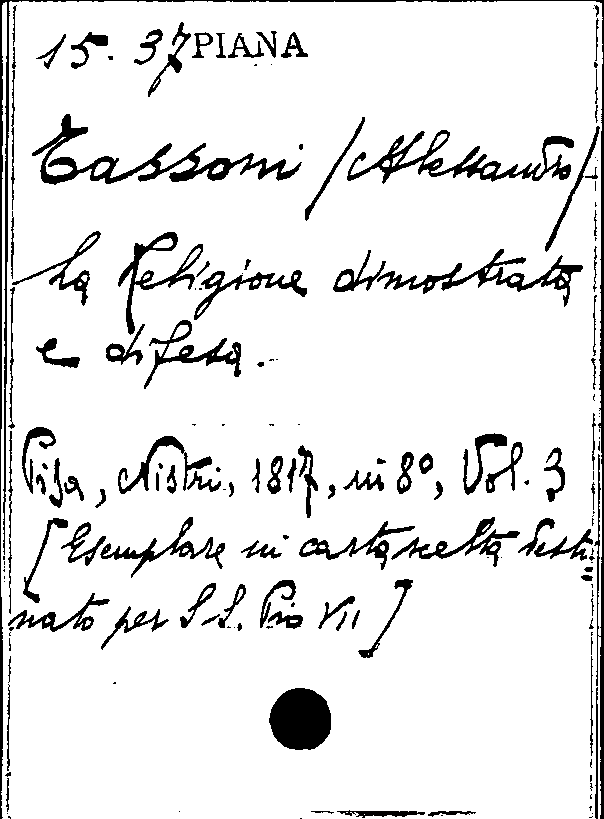 15. 37 PIANA
Tassoni /Alessandro/
La Religione dimostrata
e difesa.
Pisa, Nistri, 1817, in 8º, Vol. 3
[Esemplare in carta scelta desti:
nato per S S. Pio VII]